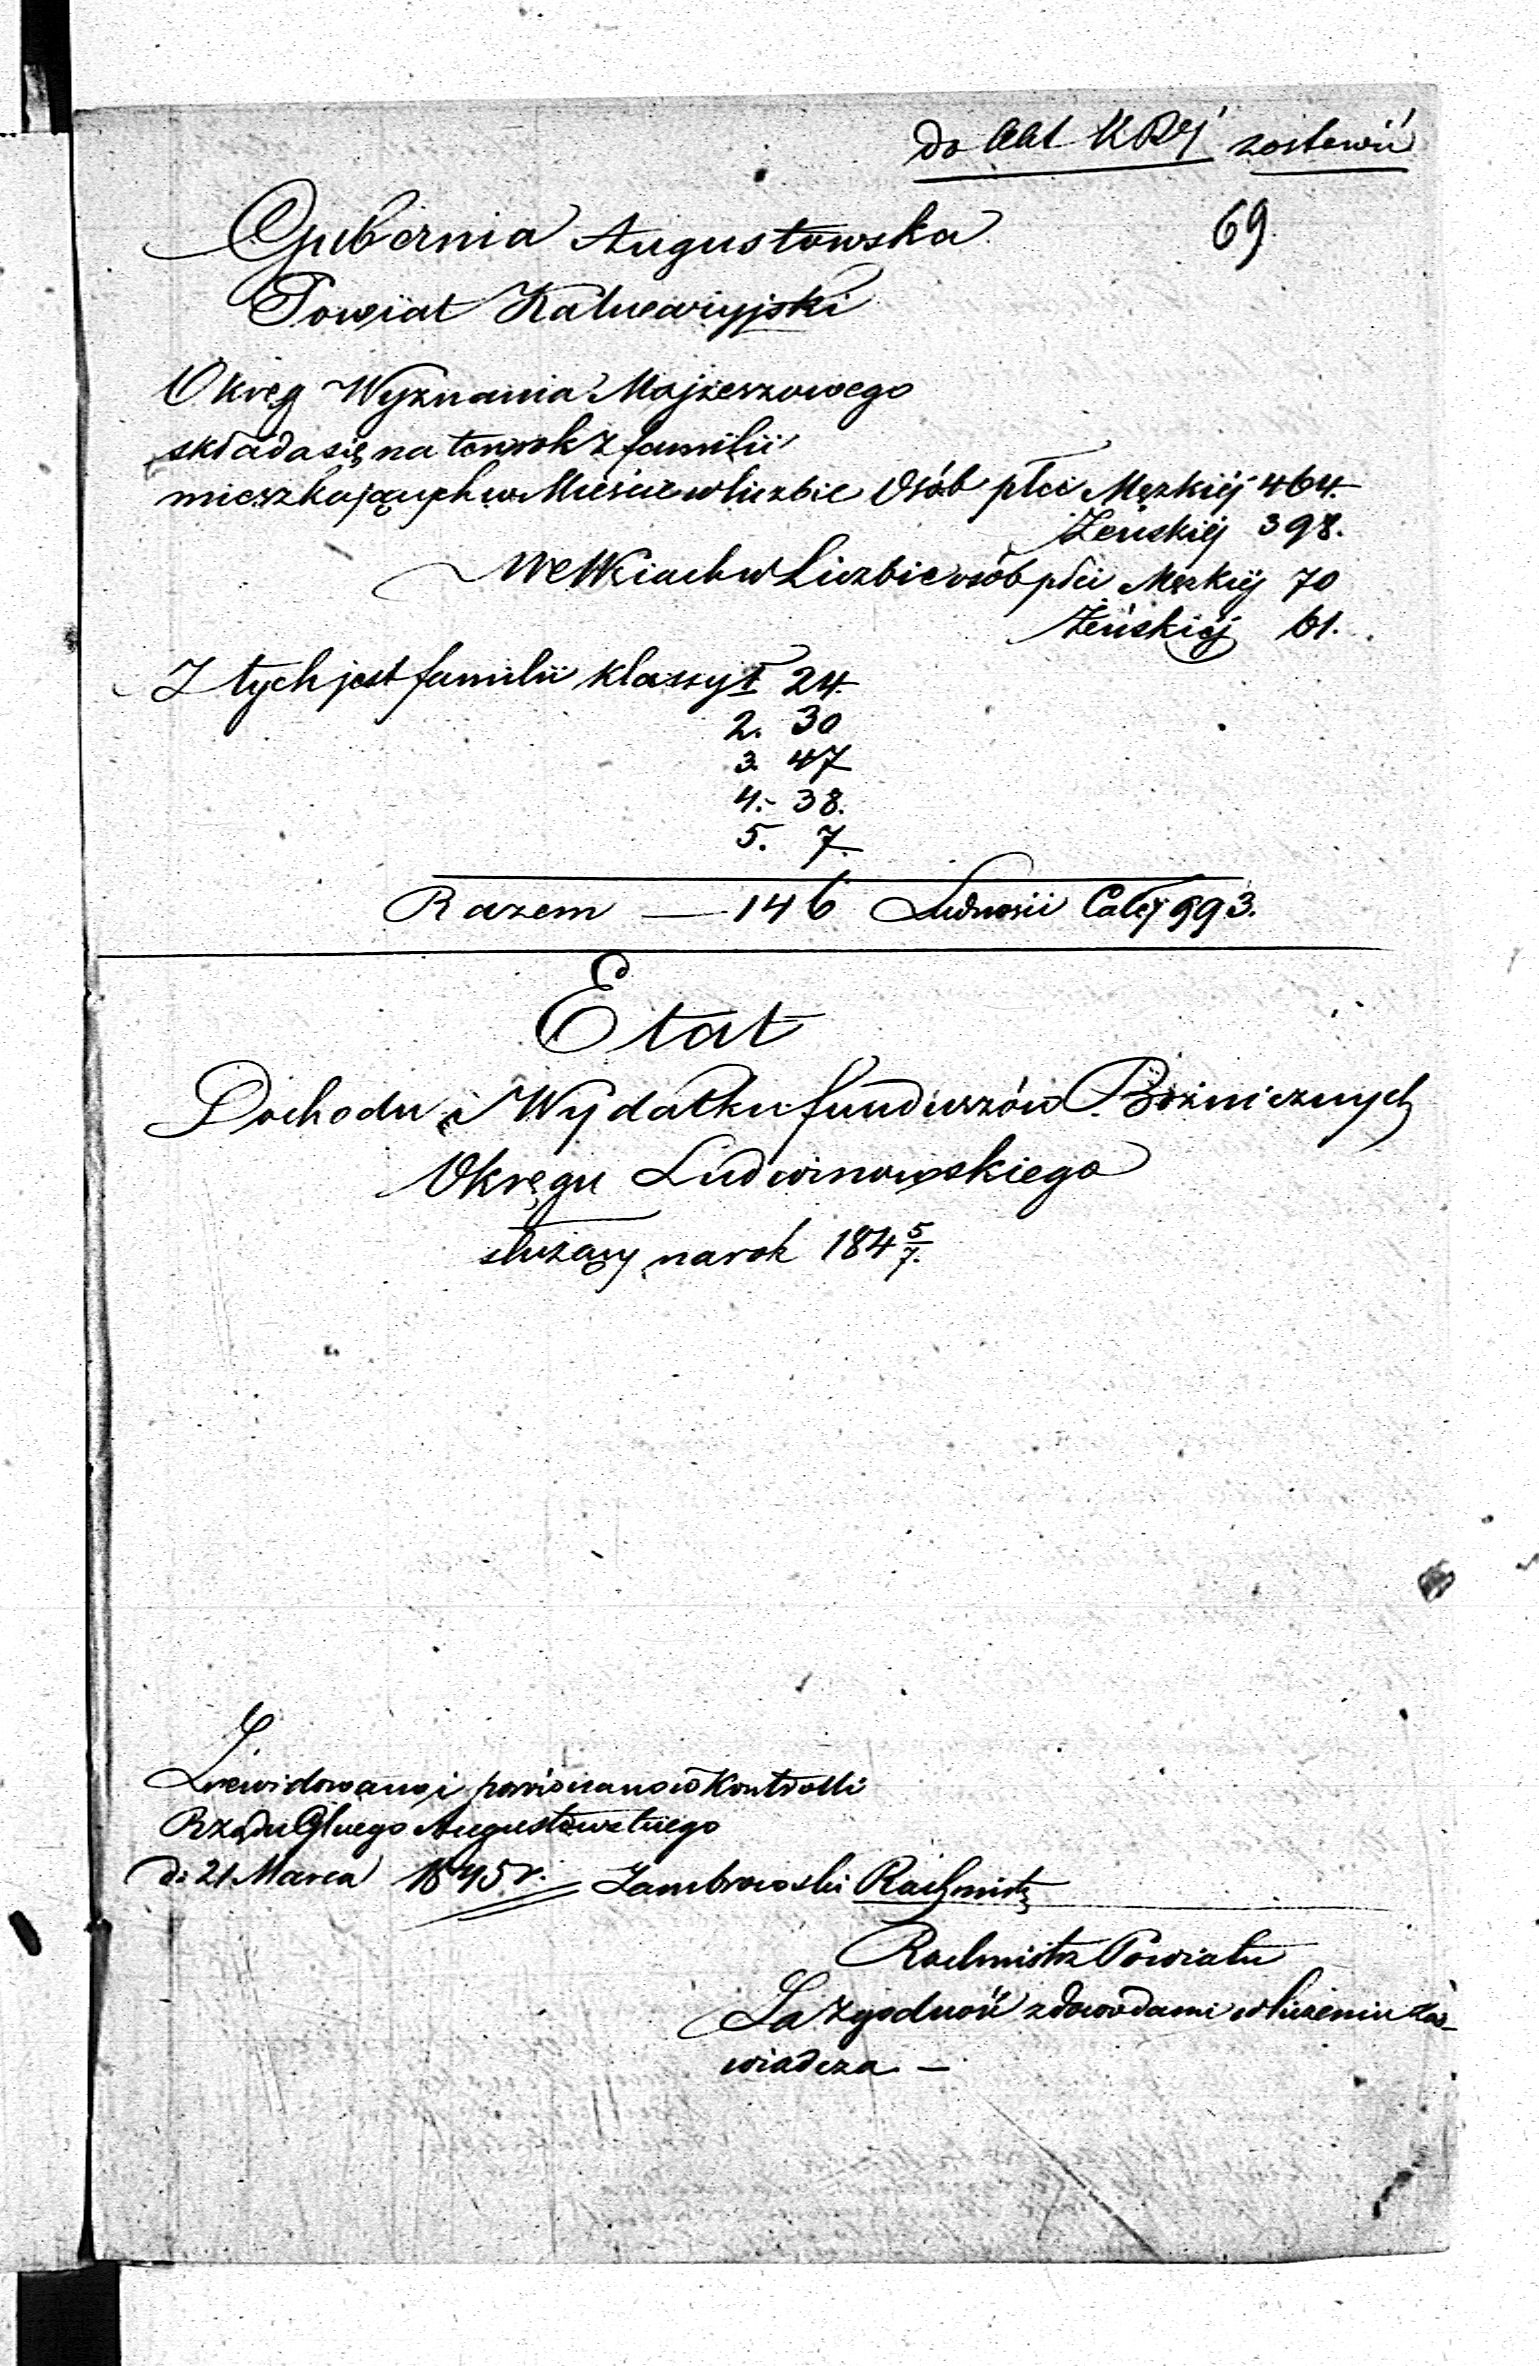 do Akt KRS zostawić
69
Gubernia Augustowska
Powiat Kalwaryjski
Okręg Wyznania Mojżeszowego
składa się na ten rok z familii
mieszkających w Mieście w liczbie Osób płci Męzkiéj 464.
Żeńskiéj 398.
We Wsiach w Liczbie osób płci Męzkiéj 70
Żeńskiéj 61.
Z tych jest familii klassy I 24.
2. 30
3. 47
4. - 38.
5. 7.
Razem — 146 Ludności Całéj 993.
Etat
Dochodu i Wydatku funduszów Bożniczych
Okręgu Ludwinowskiego
służący na rok 184 5/7.
Zrewidowano i porównano w Kontrolli
Rządu Glnego Augustowskiego
d: 21 Marca 1845 r. Zambrowski Rachmistrz
Rachmistrz Powiatu
Za zgodność z dowodami w liczeniu zaś-
wiadcza —